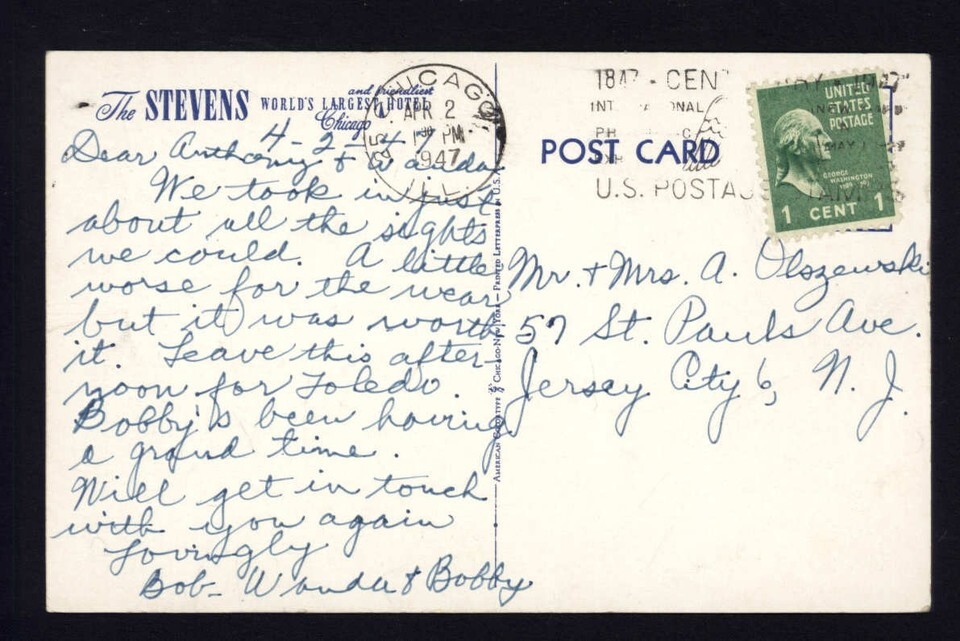 The STEVENS
WORLD'S LARGEST HOTEL
and friendliest
Chicago
4-2-47
Dear Anthony & Wanda
We took in just
about all the sights
we could. A little
worse for the wear
but it was worth
it. Leave this after-
noon for Toledo.
Bobby's been having
a grand time.
Will get in touch
with you again
Lovingly
Bob- Wanda & Bobby
CHICAGO
APR 2
1 30 PM
1947
ILL.
1847 - CEN
U.S. POSTA
POST CARD
UNITED
STATES
POSTAGE
GEORGE
WASHINGTON
1 CENT 1
AMERICAN COLORTYPE CHICAGO-NEW YORK — PRINTED LETTERPRESS IN U.S.A.
Mr. + Mrs. A. Olszewski
57 St. Pauls Ave.
Jersey City 6, N. J.